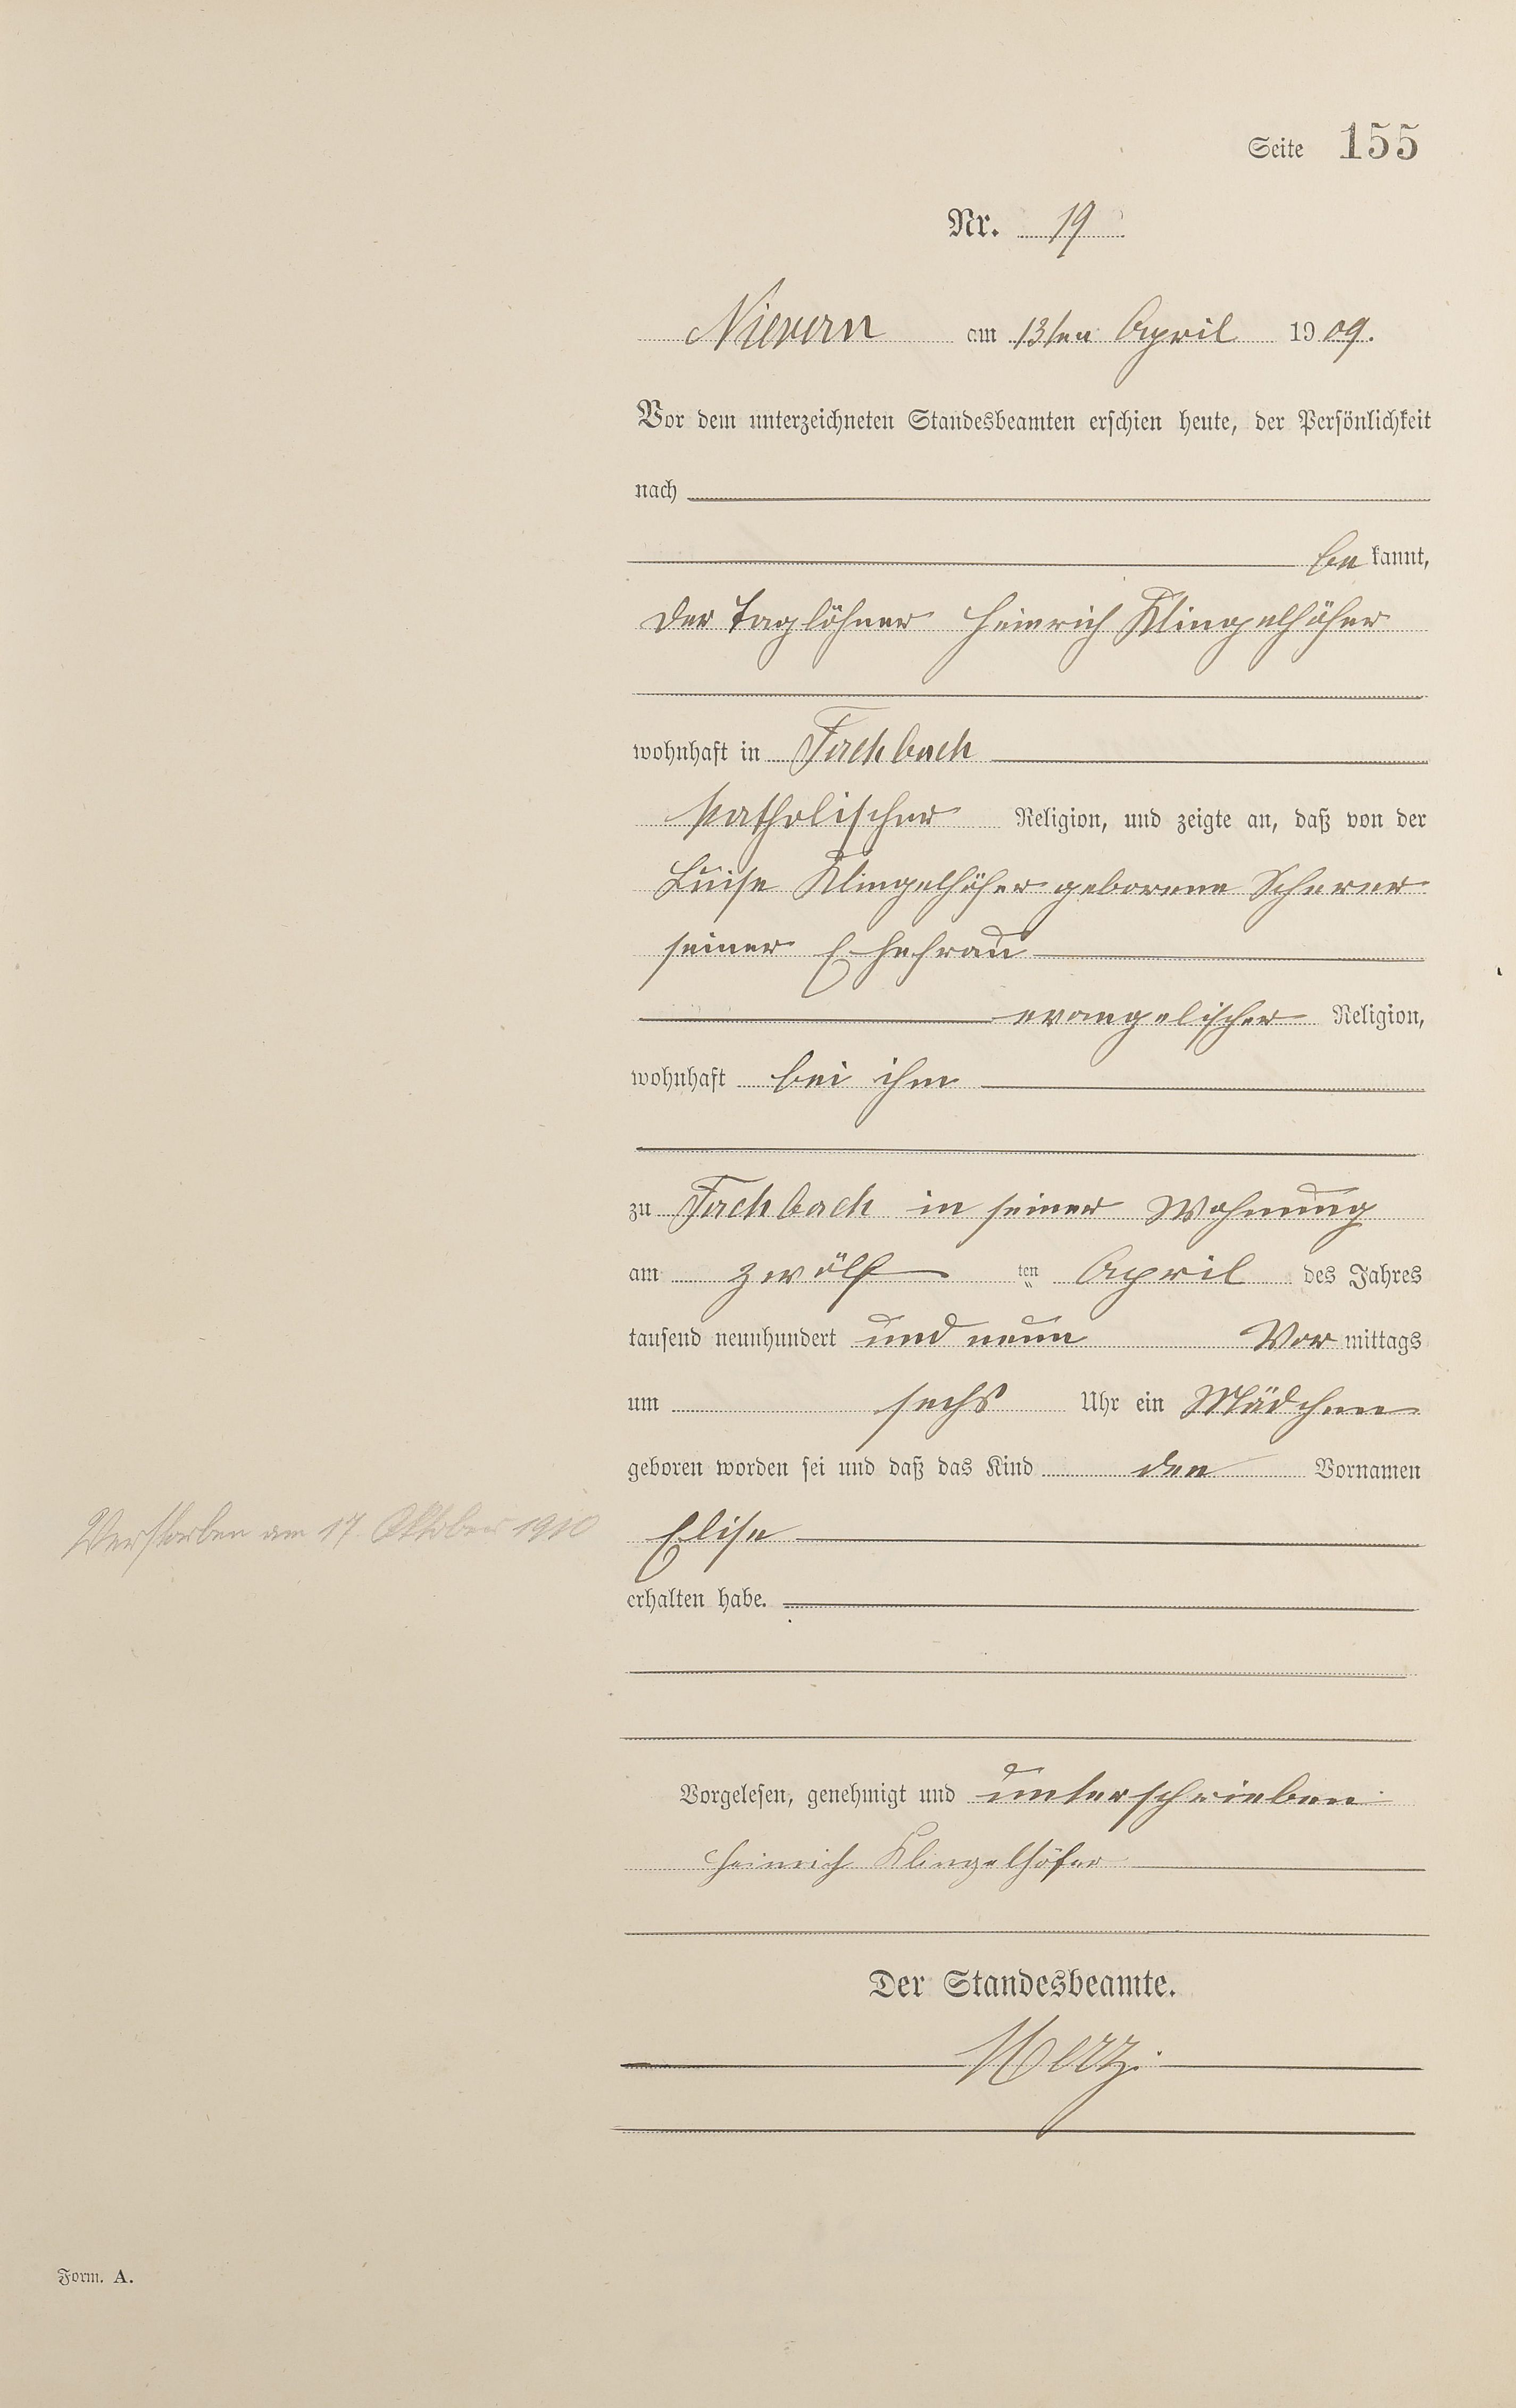 Seite 155
Nr. 19
Nievern am 13ten April 1909.
Vor dem unterzeichneten Standesbeamten erschien heute, der Persönlichkeit
nach
bekannt,
der Taglöhner Heinrich Klingelhöfer
wohnhaft in Fachbach
katholischer Religion, und zeigte an, daß von der
Luise Klingelhöfer geborene Scherer
seiner Ehefrau
evangelischer Religion,
wohnhaft bei ihm
zu Fachbach in seiner Wohnung
am zwölf ten April des Jahres
tausend neunhundert und neun Vormittags
um sechs Uhr ein Mädchen
geboren worden sei und daß das Kind den Vornamen
Verstorben am 17. Oktober 1910
Elise
erhalten habe.
Vorgelesen, genehmigt und unterschrieben
Heinrich Klingelhöfer
Der Standesbeamte.
Form. A.